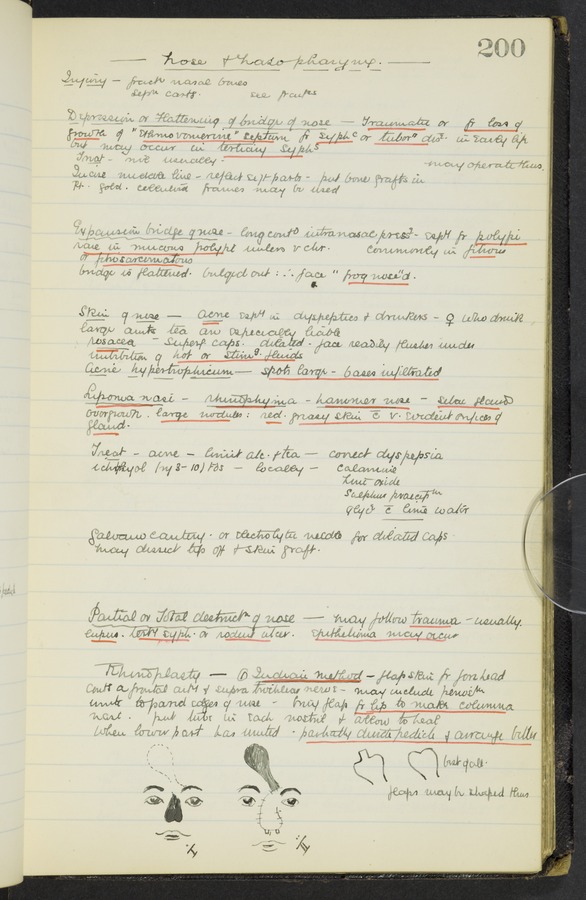 200
— Nose & Naso pharynx. —
Injury — fract nasal bones
Sepm cartg. see fractrs
Depression or Flattening of bridge of nose — Traumatic or fr loss of
growth of "ethmovomerine" septum fr Syphc or tuberr disse in early life
but may occur in tertiary Syphs
Treat - not usually - may operate thus.
Incise middle line - reflect soft parts - put bone grafts in
Pt. gold. celluloid frames may be used
Expansion bridge of nose - long contd intranasal press. - espy fr polypi
rare in mucous polypi unless v chr. Commonly in fibrous
or fibrosarcomatous
bridge is flattened. bulged out : ∴ face "frog nose"d.
Skin of nose — acne espy in dyspeptics & drinkers - ♀ who drink
large amts tea are especially liable
rosacea - superfl caps. dilated. face readily flushes under
imbibition of hot or stimg. fluids
Acne hypertrophicum — spots large - bases infiltrated
Lipoma nasi - rhinophyma - hammer nose - sebac glands
overgrown. large nodules : red. greasy skin c̄ v. evident orifices of
gland.
Treat - acne - limit alc. & tea - correct dyspepsia
ichthyol tds - locally - calamine
Zinc oxide
Sulphur praecipm
glyc c̄ lime water
Galvano cautery. or electrolytic needle for dilated caps.
may dissect tip off & skin graft.
Partial or Total destructn of nose — may follow trauma - usually.
lupus. terty syph. or rodent ulcer. Epithelioma may occur
Rhinoplasty — ① Indian method - flap skin fr forehead
conts a frontal arty & supra trochlear nerve - may include periostm
unite to pared edges of nose - bring flap fr lip to make columna
nasi. put tube in each nostril & allow to heal
When lower part has united. partially divide pedicle & arrange better
but gall.
flaps may be shaped thus.
I.
II.